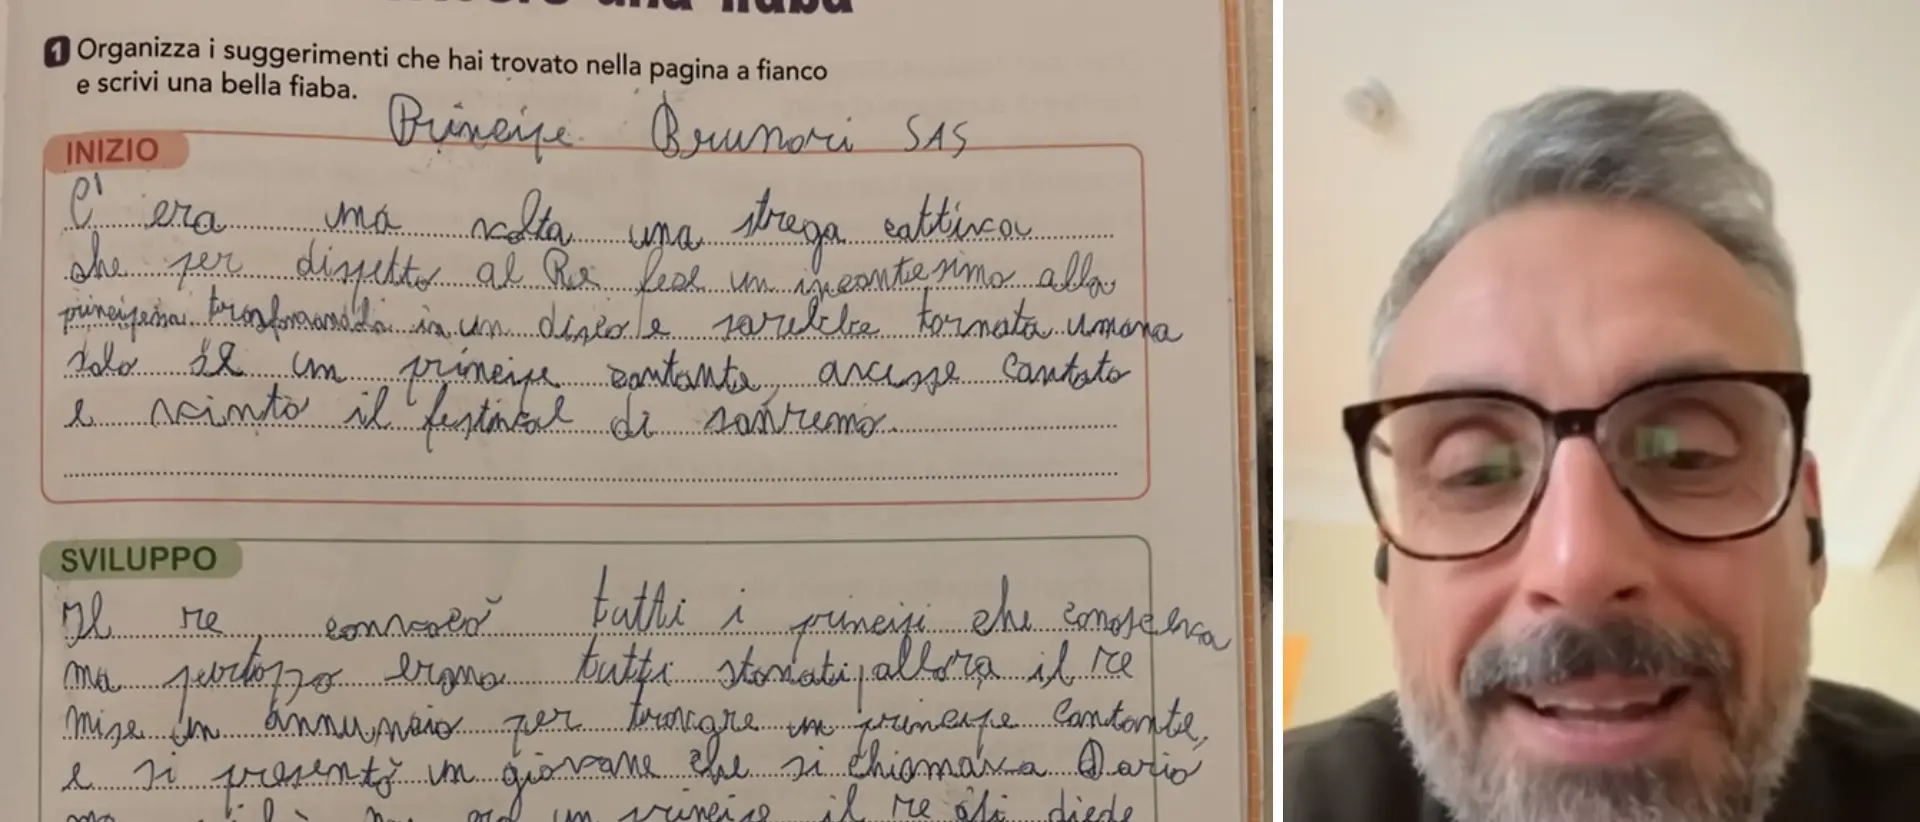 una fiaba
1 Organizza i suggerimenti che hai trovato nella pagina a fianco
e scrivi una bella fiaba.
Principe Brunori SAS
INIZIO
C'era una volta una strega cattiva
che per dispetto al Re fece un incantesimo alla
principessa trasformandola in un disco e sarebbe tornata umana
solo se un principe cantante, avesse cantato
e vinto il festival di sanremo.
SVILUPPO
Il re convocò tutti i principi che conosceva
ma purtoppo erano tutti stonati, allora il re
mise un annuncio per trovare un principe cantante,
e si presentò un giovane che si chiamava Dario
un principe il re gli diede